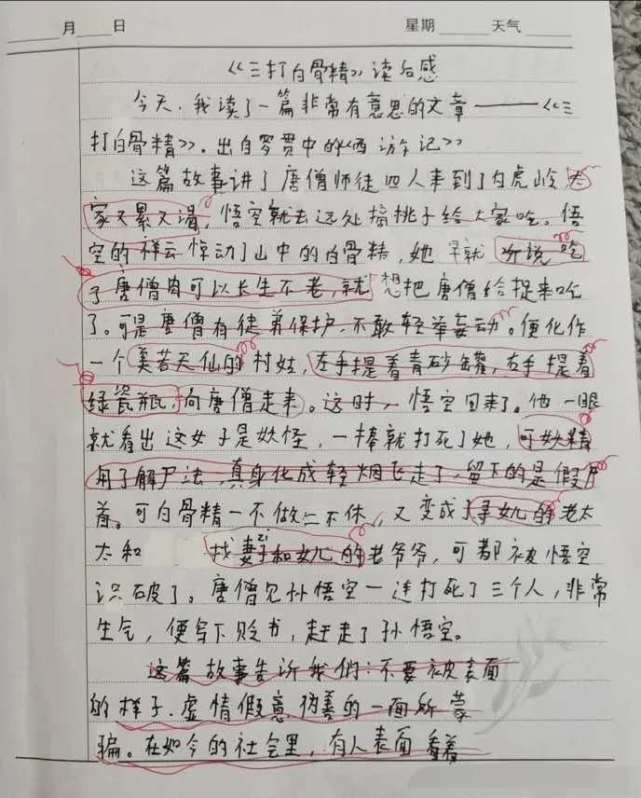 月 日 星期 天气
《三打白骨精》读后感
今天,我读了一篇非常有意思的文章——《三
打白骨精》。出自罗贯中的《西游记》
这篇故事讲了唐僧师徒四人来到了白虎岭 大
家又累又渴,悟空就去远处摘桃子给大家吃。悟
空的祥云惊动了山中的白骨精,她早就 听说吃
了唐僧肉可以长生不老,就想把唐僧给捉来吃
了。可是唐僧有徒弟保护,不敢轻举妄动。便化作
一个美若天仙的村姑,左手提着青砂罐,右手提着
绿瓷瓶,向唐僧走来。这时,悟空回来了。他一眼
就看出这女子是妖怪,一棒就打死了她,可妖精
用了解尸法,真身化成轻烟飞走了,留下的是假尸
首。可白骨精一不做二不休,又变成了寻女儿的老太
太和 找妻子和女儿的老爷爷,可都被悟空
识破了。唐僧见孙悟空一连打死了三个人,非常
生气,便写下贬书,赶走了孙悟空。
这篇故事告诉我们:不要被表面
的样子.虚情假意伪善的一面所蒙
骗。在如今的社会里,有人表面看着